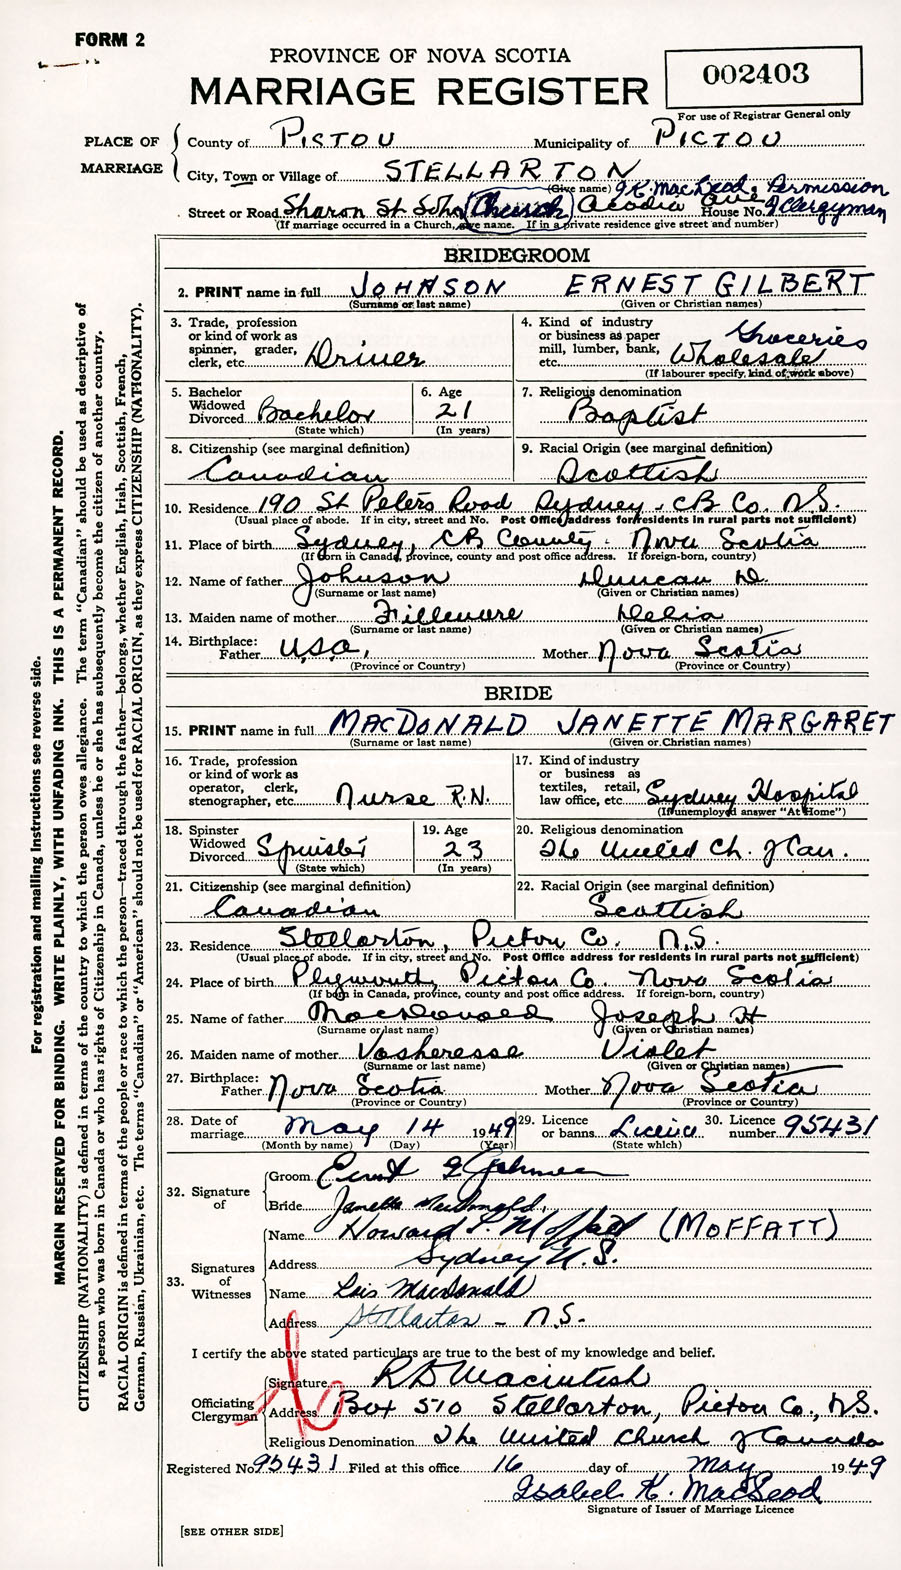 FORM 2
PROVINCE OF NOVA SCOTIA
MARRIAGE REGISTER
002403
For use of Registrar General only
PLACE OF MARRIAGE
County of PICTOU Municipality of PICTOU
City, Town or Village of STELLARTON
(Give name) I.K. MacLeod. Permission
Street or Road Sharon St John Church Acadia Ave House No. of Clergyman
(If marriage occurred in a Church, give name. If in a private residence give street and number)
BRIDEGROOM
2. PRINT name in full JOHNSON ERNEST GILBERT
(Surname or last name) (Given or Christian names)
3. Trade, profession or kind of work as spinner, grader, clerk, etc. Driver
4. Kind of industry or business as paper mill, lumber, bank, etc. Groceries Wholesale
(If labourer specify kind of work above)
5. Bachelor Widowed Divorced Bachelor
(State which)
6. Age 21
(In years)
7. Religious denomination
Baptist
8. Citizenship (see marginal definition)
Canadian
9. Racial Origin (see marginal definition)
Scottish
10. Residence 190 St Peters Road Sydney, CB Co. N.S.
(Usual place of abode. If in city, street and No. Post Office address for residents in rural parts not sufficient)
11. Place of birth Sydney, CB County. Nova Scotia
(If born in Canada, province, county and post office address. If foreign-born, country)
12. Name of father Johnson Duncan D.
(Surname or last name) (Given or Christian names)
13. Maiden name of mother Fillmore Delia
(Surname or last name) (Given or Christian names)
14. Birthplace:
Father U.S.A. Mother Nova Scotia
(Province or Country) (Province or Country)
BRIDE
15. PRINT name in full MACDONALD JANETTE MARGARET
(Surname or last name) (Given or Christian names)
16. Trade, profession or kind of work as operator, clerk, stenographer, etc. Nurse R.N.
17. Kind of industry or business as textiles, retail, law office, etc. Sydney Hospital
(If unemployed answer "At Home")
18. Spinster Widowed Divorced Spinster
(State which)
19. Age 23
(In years)
20. Religious denomination
The United Ch. of Can.
21. Citizenship (see marginal definition)
Canadian
22. Racial Origin (see marginal definition)
Scottish
23. Residence Stellarton, Pictou Co. N.S.
(Usual place of abode. If in city, street and No. Post Office address for residents in rural parts not sufficient)
24. Place of birth Plymouth, Pictou Co. Nova Scotia
(If born in Canada, province, county and post office address. If foreign-born, country)
25. Name of father MacDonald Joseph H
(Surname or last name) (Given or Christian names)
26. Maiden name of mother Violet
(Surname or last name) (Given or Christian names)
27. Birthplace:
Father Nova Scotia Mother Nova Scotia
(Province or Country) (Province or Country)
28. Date of marriage May 14 1949
(Month by name) (Day) (Year)
29. Licence or banns Licence
(State which)
30. Licence number 95431
32. Signature of
Groom Ernest G Johnson
Bride Janette MacDonald.
33. Signatures of Witnesses
Name Howard P. Moffatt (MOFFATT)
Address Sydney N.S.
Name Lois MacDonald
Address Stellarton - N.S.
I certify the above stated particulars are true to the best of my knowledge and belief.
Officiating Clergyman
Signature R D Macintosh
Address Box 510 Stellarton, Pictou Co., N.S.
Religious Denomination The United Church of Canada
Registered No. 95431 Filed at this office 16 day of May 1949
Isabel K. MacLeod
Signature of Issuer of Marriage Licence
[SEE OTHER SIDE]
For registration and mailing instructions see reverse side.
MARGIN RESERVED FOR BINDING. WRITE PLAINLY, WITH UNFADING INK. THIS IS A PERMANENT RECORD.
CITIZENSHIP (NATIONALITY) is defined in terms of the country to which the person owes allegiance. The term "Canadian" should be used as descriptive of
a person who was born in Canada or who has rights of Citizenship in Canada, unless he or she has subsequently become the citizen of another country.
RACIAL ORIGIN is defined in terms of the people or race to which the person—traced through the father—belongs, whether English, Irish, Scottish, French,
German, Russian, Ukrainian, etc. The terms "Canadian" or "American" should not be used for RACIAL ORIGIN, as they express CITIZENSHIP (NATIONALITY).